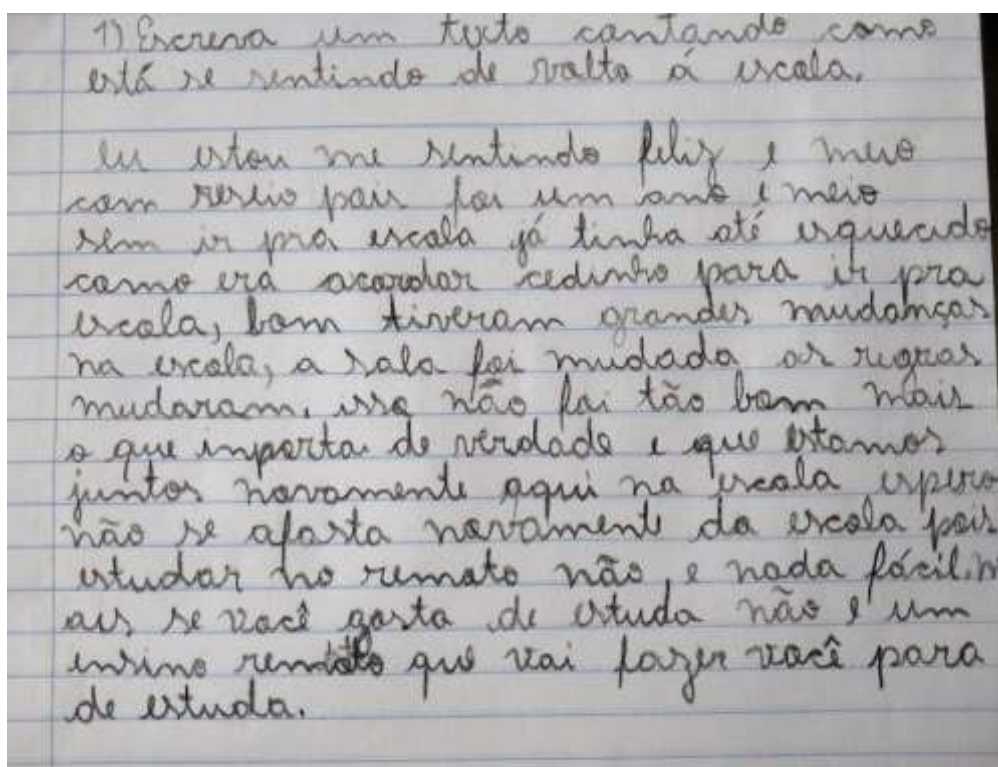 1) Escreva um texto contando como
está se sentindo de volta á escola.
Eu estou me sentindo feliz e meio
com reseio pois foi um ano e meio
sem ir pra escola já tinha até esquecido
como era acordar cedinho para ir pra
escola, bom tiveram grandes mudanças
na escola, a sala foi mudada as regras
mudaram. isso não foi tão bom mais
o que inporta de verdade e que estamos
juntos novamente aqui na escola espero
não se afasta novamente da escola pois
estudar no remoto não, e nada fácil.m
ais se você gosta de estuda não e um
ensino remoto que vai fazer você para
de estuda.